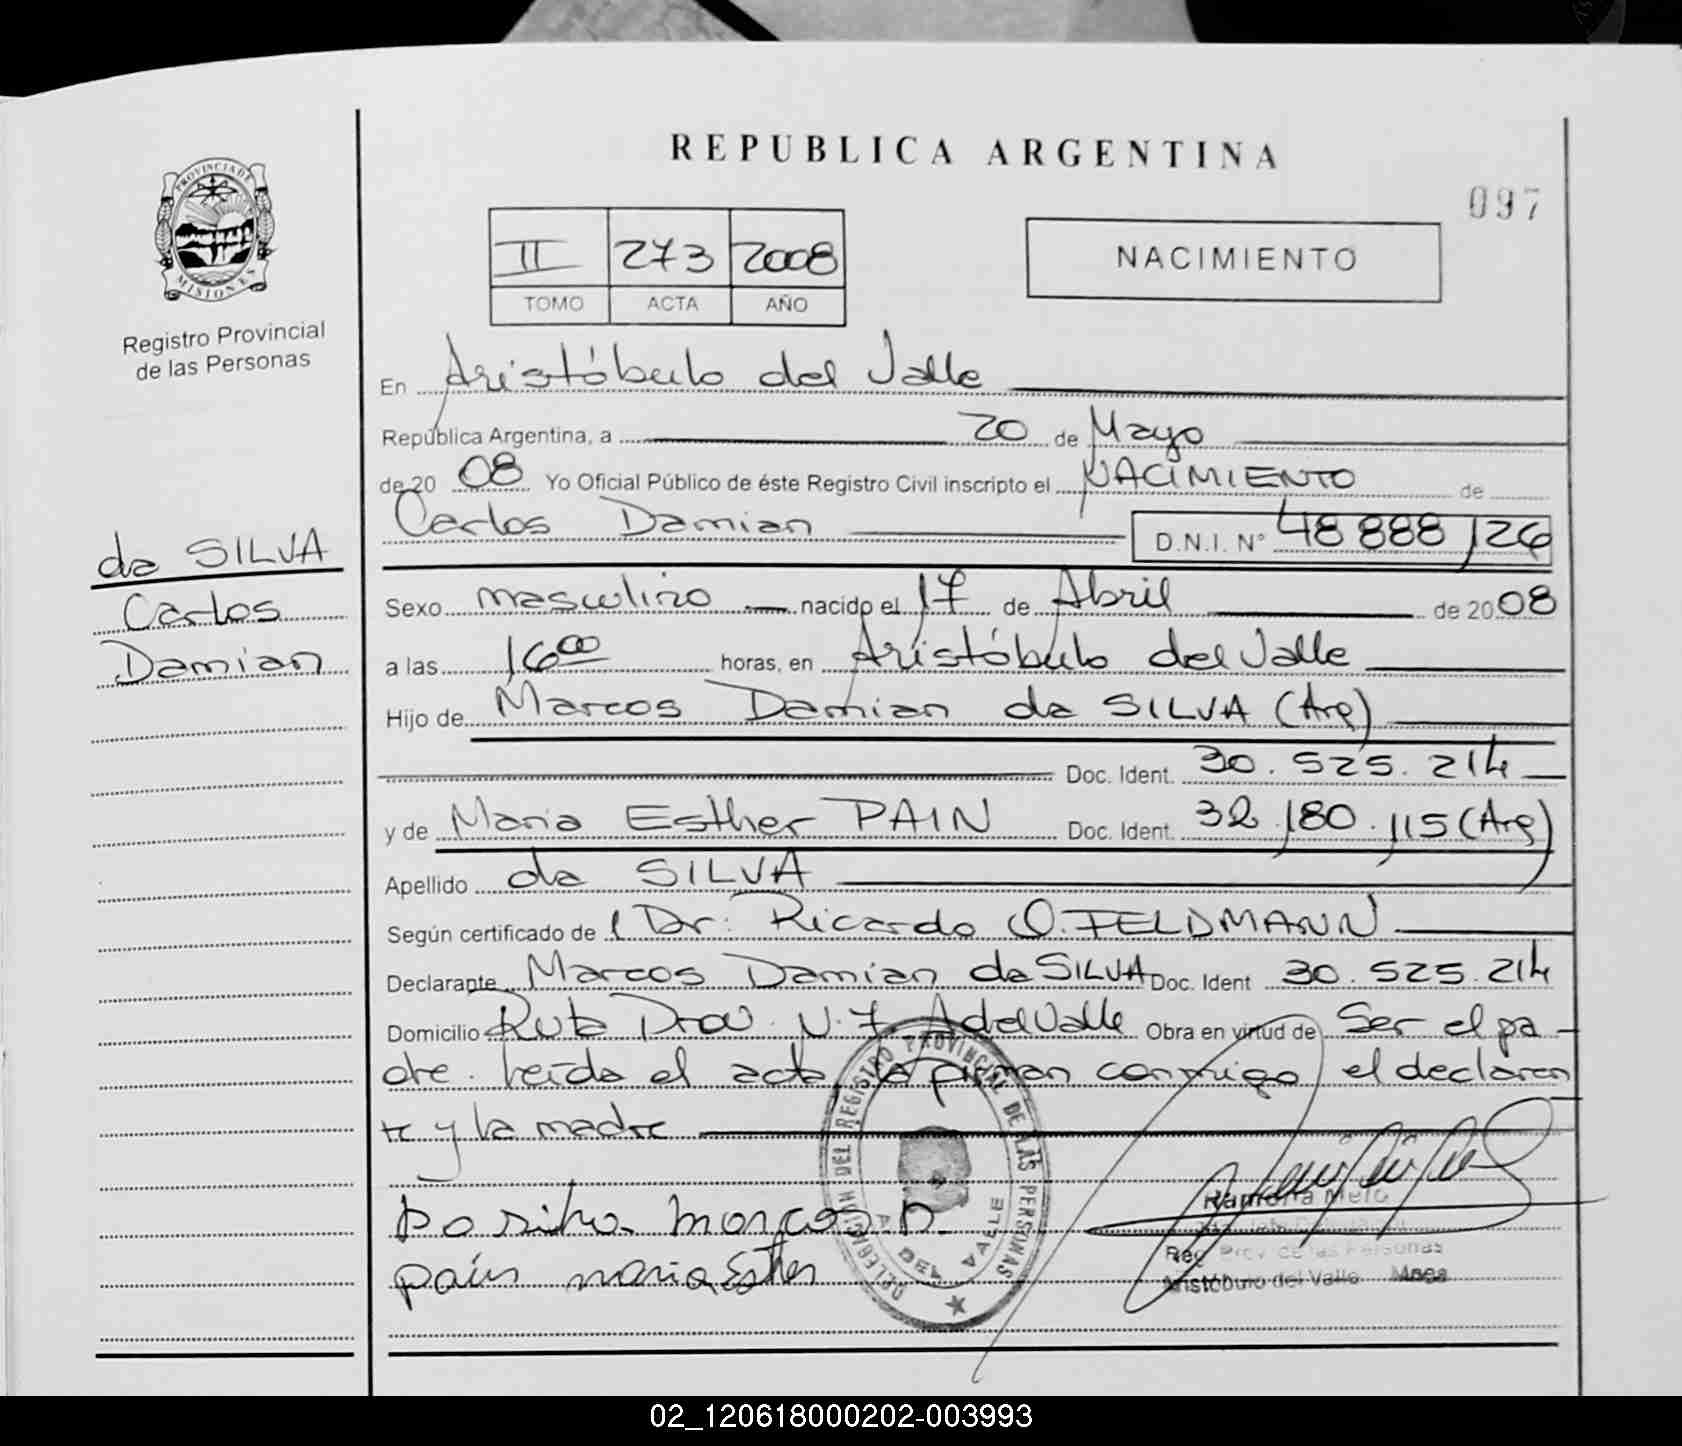 REPUBLICA ARGENTINA
097
PROVINCIA DE
MISIONES
Registro Provincial
de las Personas
II 273 2008
TOMO ACTA AÑO
NACIMIENTO
En Aristóbulo del Valle
República Argentina, a 20 de Mayo
de 20 08 Yo Oficial Público de éste Registro Civil inscripto el NACIMIENTO de
Carlos Damian D.N.I. N° 48 888 126
da SILVA
Carlos
Damian
Sexo masculino nacido el 17 de Abril de 2008
a las 16 00 horas, en Aristóbulo del Valle
Hijo de Marcos Damian da SILVA (Arg)
Doc. Ident. 30.525.214
y de Maria Esther PAIN Doc. Ident. 32.180.115 (Arg)
Apellido da SILVA
Según certificado de l Dr: Ricardo O. FELDMANN
Declarante Marcos Damian da SILVA Doc. Ident 30.525.214
Domicilio Ruta Prov. N.7 A del Valle Obra en virtud de Ser el pa-
dre. Leída el acta, la firman conmigo el declaran
te y la madre
DELEGACION DEL REGISTRO PROVINCIAL DE LAS PERSONAS
A DEL VALLE
Da silva marcos D.
pain maria Esther
Ramona Melo
Reg Prov de las Personas
Aristóbulo del Valle Mnes
02_120618000202-003993